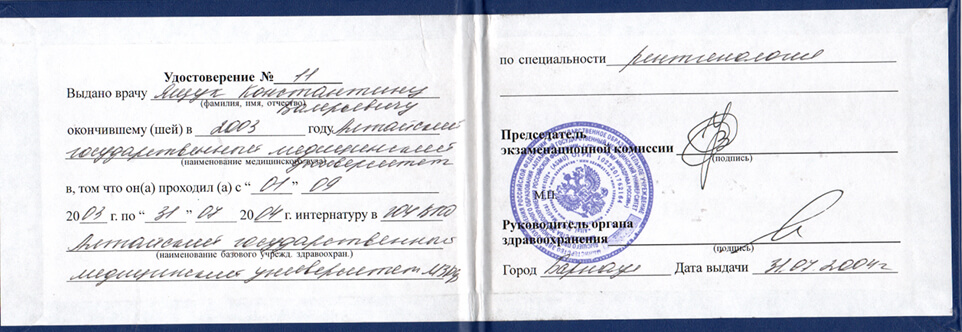 Удостоверение № 11
Выдано врачу Ящук Константину
(фамилия, имя, отчество)
Валерьевичу
окончившему (шей) в 2003 году Алтайский
государственный медицинский
(наименование медицинского вуза)
университет
в, том что он(а) проходил (а) с “ 01 ” 09
2003 г. по “ 31 ” 07 2004 г. интернатуру в ГОУ ВПО
Алтайский государственный
(наименование базового учрежд. здравоохран.)
медицинский университет МЗ РФ
по специальности рентгенология
Председатель
экзаменационной комиссии
(подпись)
М.П.
Руководитель органа
здравоохранения
(подпись)
Город Барнаул Дата выдачи 31.07.2004 г